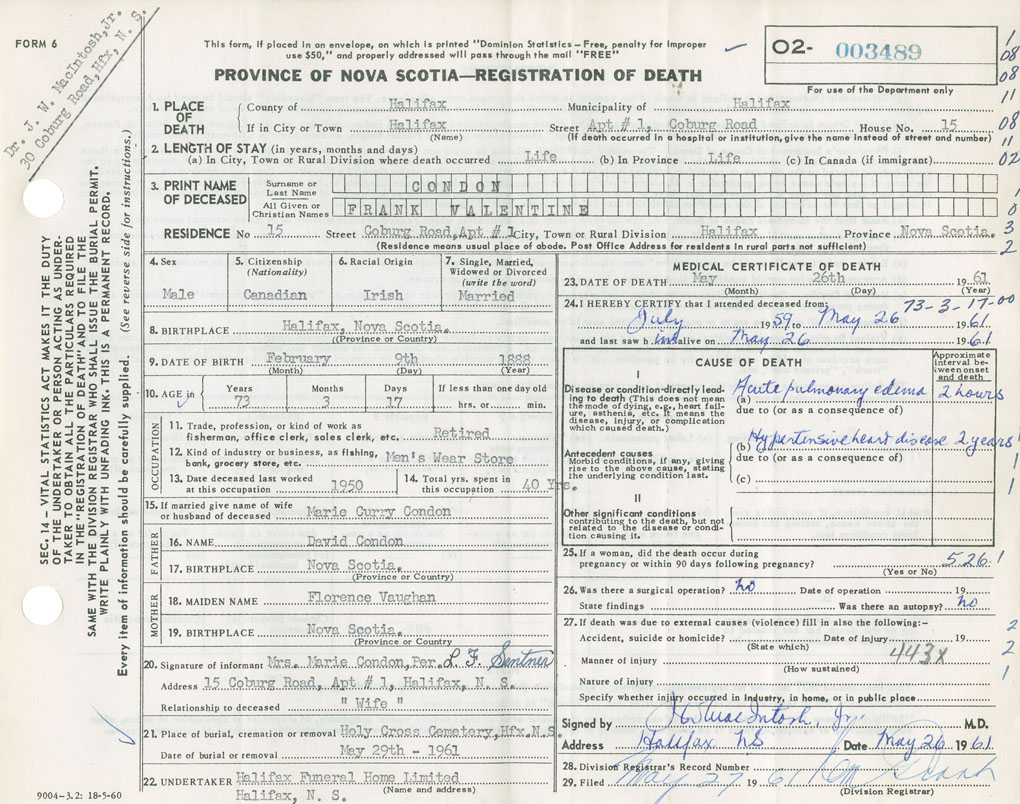 FORM 6
Dr. J. W. MacIntosh, Jr.
30 Coburg Road, Hfx, N. S.
This form, if placed in an envelope, on which is printed "Dominion Statistics – Free, penalty for improper
use $50," and properly addressed will pass through the mail "FREE"
PROVINCE OF NOVA SCOTIA—REGISTRATION OF DEATH
02- 003489
For use of the Department only
1. PLACE OF DEATH
County of Halifax Municipality of Halifax
If in City or Town Halifax Street Apt # 1, Coburg Road House No. 15
(Name) (If death occurred in a hospital or institution, give the name instead of street and number)
2. LENGTH OF STAY (in years, months and days)
(a) In City, Town or Rural Division where death occurred Life (b) In Province Life (c) In Canada (if immigrant)
3. PRINT NAME OF DECEASED
Surname or Last Name CONDON
All Given or Christian Names FRANK VALENTINE
RESIDENCE No 15 Street Coburg Road, Apt # 1 City, Town or Rural Division Halifax Province Nova Scotia.
(Residence means usual place of abode. Post Office Address for residents in rural parts not sufficient)
1
08
08
11
08
11
02
1
0
3
2
SEC. 14 – VITAL STATISTICS ACT MAKES IT THE DUTY
OF THE UNDERTAKER OR PERSON ACTING AS UNDER-
TAKER TO OBTAIN ALL THE PARTICULARS REQUIRED
IN THE "REGISTRATION OF DEATH" AND TO FILE THE
SAME WITH THE DIVISION REGISTRAR WHO SHALL ISSUE THE BURIAL PERMIT.
WRITE PLAINLY WITH UNFADING INK. THIS IS A PERMANENT RECORD.
Every item of information should be carefully supplied. (See reverse side for instructions.)
4. Sex
Male
5. Citizenship
(Nationality)
Canadian
6. Racial Origin
Irish
7. Single, Married,
Widowed or Divorced
(write the word)
Married
8. BIRTHPLACE Halifax, Nova Scotia.
(Province or Country)
9. DATE OF BIRTH February 9th 1888
(Month) (Day) (Year)
10. AGE in Years 73 Months 3 Days 17 If less than one day old
hrs. or min.
OCCUPATION
11. Trade, profession, or kind of work as
fisherman, office clerk, sales clerk, etc. Retired
12. Kind of industry or business, as fishing,
bank, grocery store, etc. Men's Wear Store
13. Date deceased last worked
at this occupation 1950
14. Total yrs. spent in
this occupation 40 Yrs.
15. If married give name of wife
or husband of deceased Marie Curry Condon
FATHER
16. NAME David Condon
17. BIRTHPLACE Nova Scotia.
(Province or Country)
MOTHER
18. MAIDEN NAME Florence Vaughan
19. BIRTHPLACE Nova Scotia.
(Province or Country
20. Signature of informant Mrs. Marie Condon, Per. L. F. Sentner
Address 15 Coburg Road, Apt # 1, Halifax, N. S.
Relationship to deceased " Wife "
21. Place of burial, cremation or removal Holy Cross Cemetery, Hfx. N.S.
Date of burial or removal May 29th - 1961
22. UNDERTAKER Halifax Funeral Home Limited
(Name and address)
Halifax, N. S.
9004–3.2: 18-5-60
MEDICAL CERTIFICATE OF DEATH
23. DATE OF DEATH May 26th 1961
(Month) (Day) (Year)
24. I HEREBY CERTIFY that I attended deceased from: 73-3-17-00
July 1959 to May 26 1961
and last saw him alive on May 26 1961
CAUSE OF DEATH
Approximate interval between onset and death
I
Disease or condition directly lead-
ing to death (This does not mean
the mode of dying, e.g., heart fail-
ure, asthenia, etc. It means the
disease, injury, or complication
which caused death.)
(a) Acute pulmonary edema 2 hours
due to (or as a consequence of)
(b) Hypertensive heart disease 2 years
due to (or as a consequence of)
(c)
Antecedent causes
Morbid conditions, if any, giving
rise to the above cause, stating
the underlying condition last.
II
Other significant conditions
contributing to the death, but not
related to the disease or condi-
tion causing it.
25. If a woman, did the death occur during
pregnancy or within 90 days following pregnancy? 5261
(Yes or No)
26. Was there a surgical operation? no Date of operation 19
State findings Was there an autopsy? no
27. If death was due to external causes (violence) fill in also the following:–
Accident, suicide or homicide? Date of injury 19
(State which)
443X
Manner of injury
(How sustained)
Nature of injury
Specify whether injury occurred in Industry, in home, or in public place
1
1
1
2
2
1
Signed by J W MacIntosh, Jr. M.D.
Address Halifax NS Date May 26 1961
28. Division Registrar's Record Number
29. Filed May 27 1961
(Division Registrar)